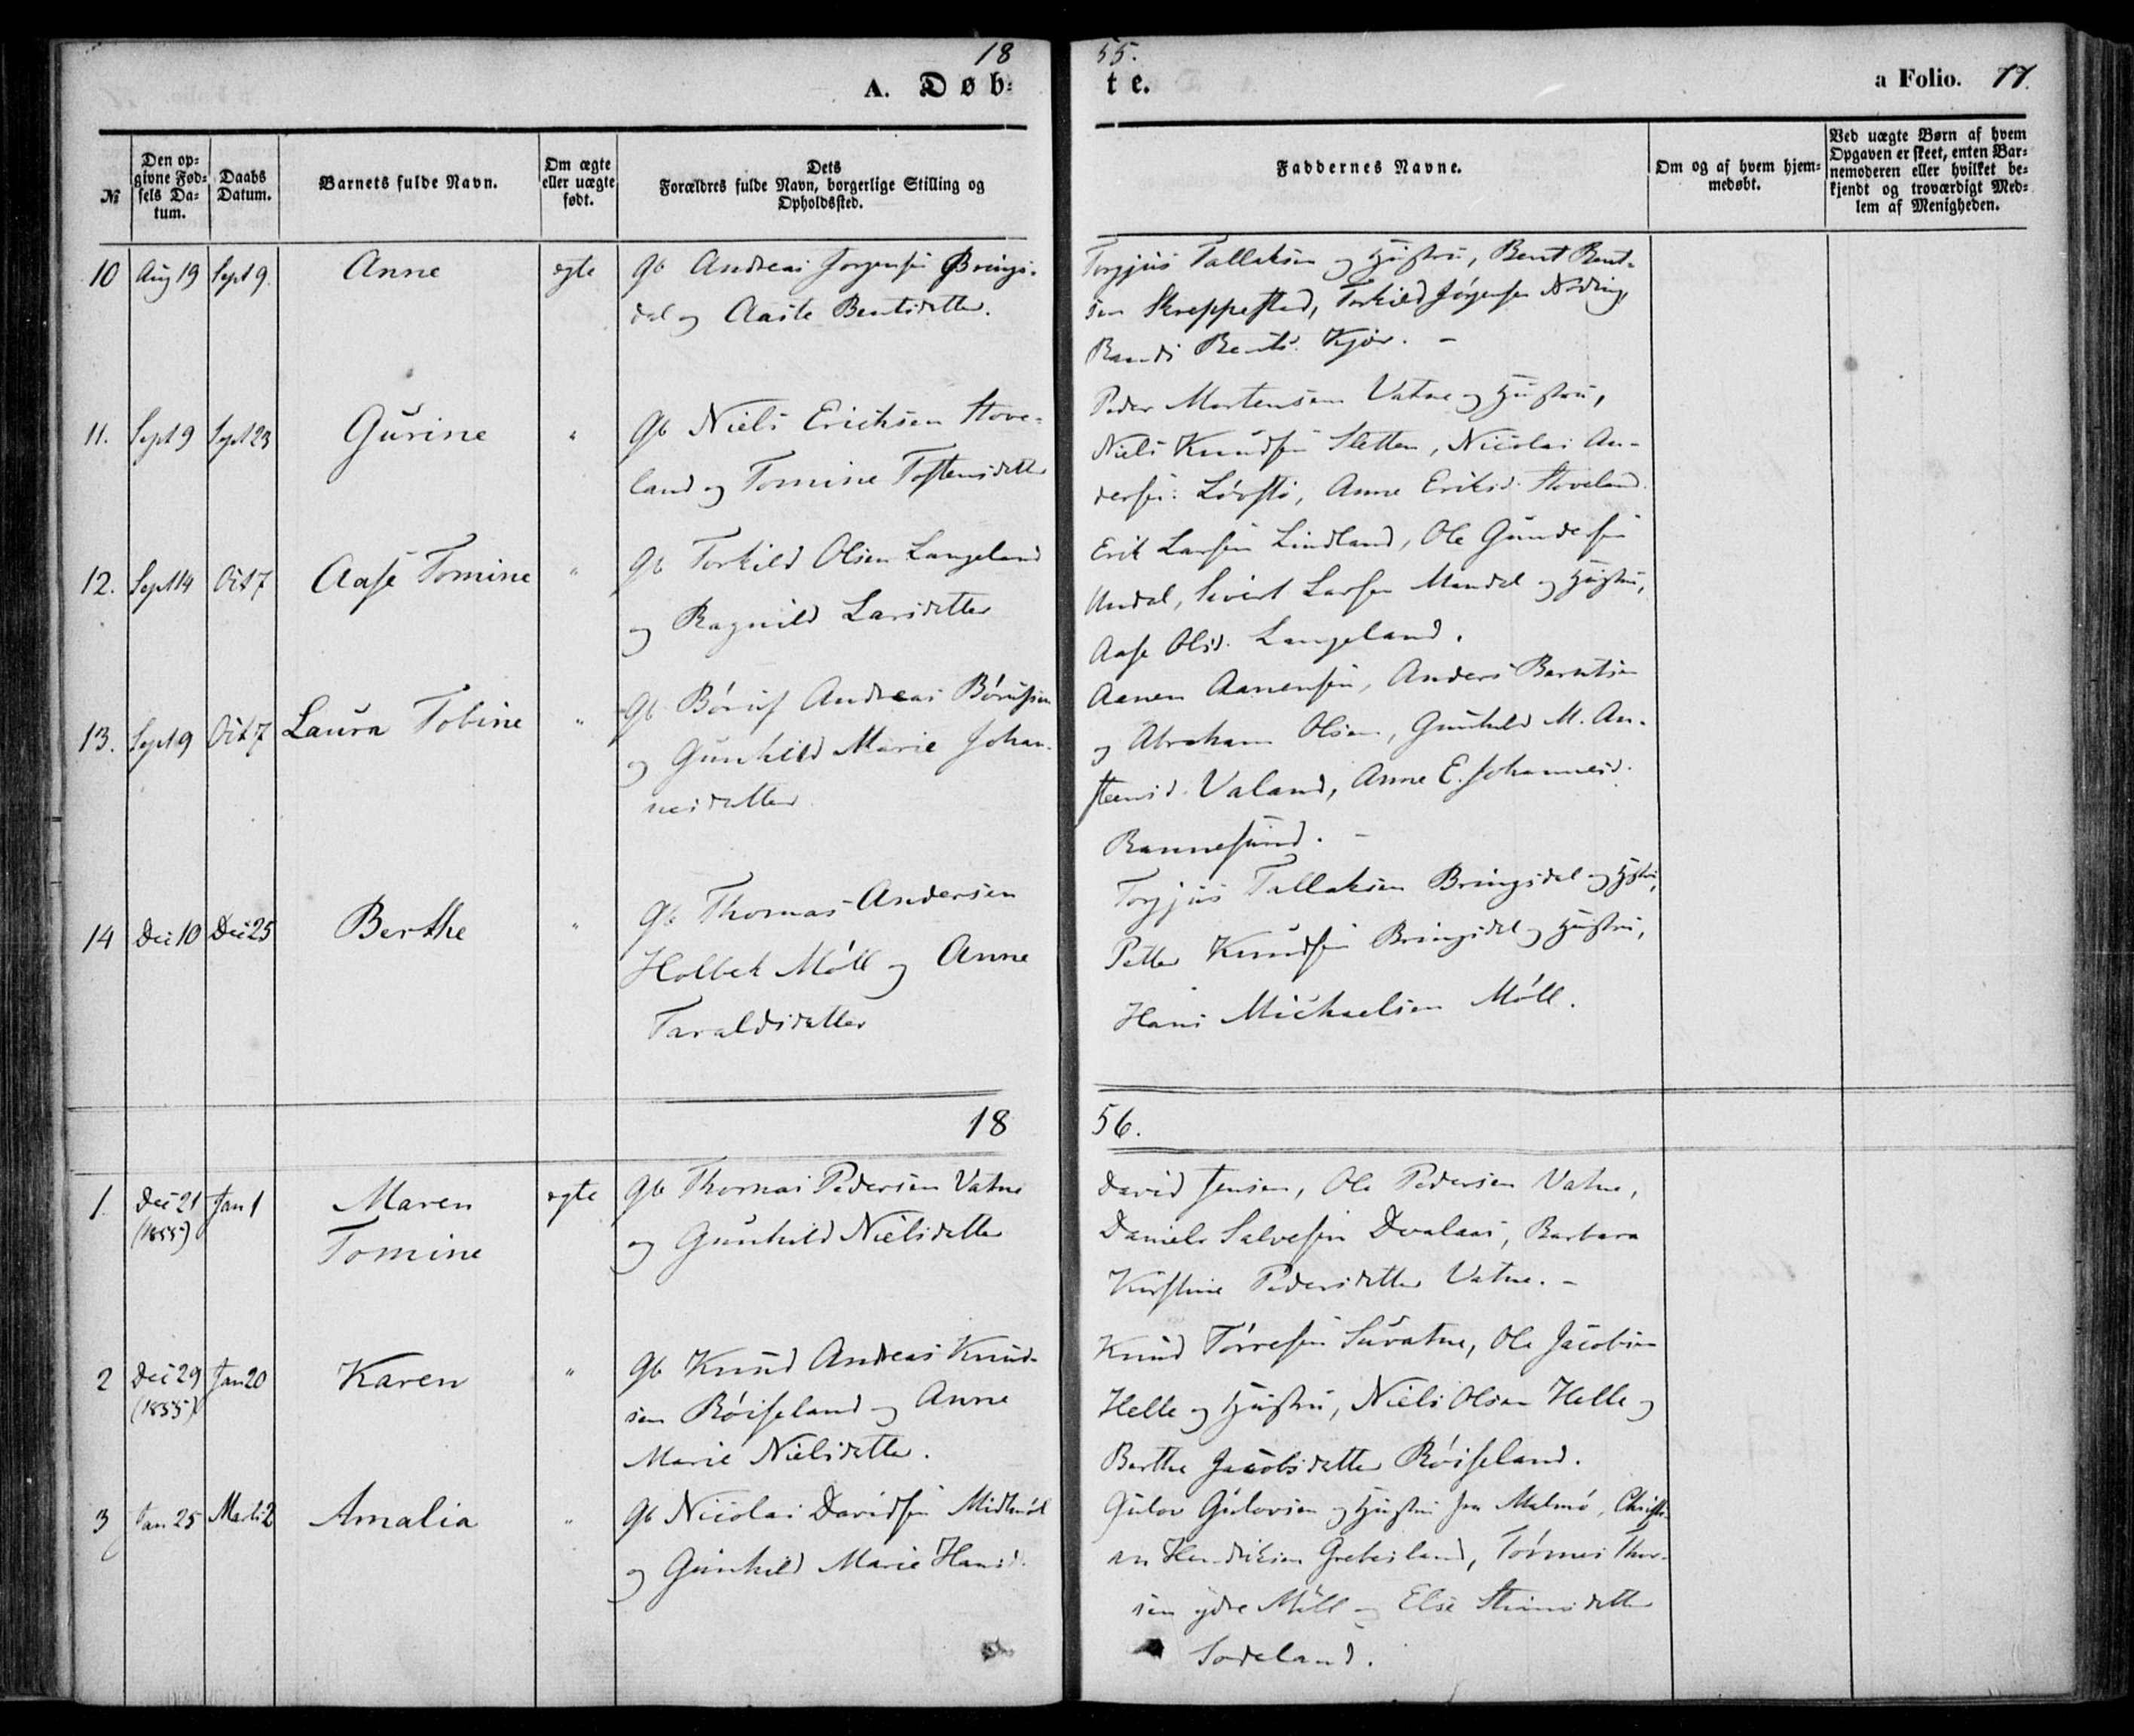 18 55.
A. Døb= te. a Folio. 77.
№
Den op=
givne Fød=
sels Da=
tum.
Daabs
Datum.
Barnets fulde Navn.
Om ægte
eller uægte
født.
Dets
Forældres fulde Navn, borgerlige Stilling og
Opholdssted.
Faddernes Navne.
Om og af hvem hjem=
medøbt.
Ved uægte Børn af hvem
Opgaven er skeet, enten Bar=
nemoderen eller hvilket be=
kjendt og troværdigt Med=
lem af Menigheden.
10 Aug 19 Sept 9. Anne ægte
Gb Andreas Jørgensen Brings-
dal og Aaste Bentsdatter.
Torgjus Tallaksen og Hustru, Bent Bent-
sen Skreppestad, Torkild Jørgensen Noding
Bents. Kjær. -
11. Sept 9 Sept 23 Gurine "
Gb Niels Ericksen Stove-
land og Tomine Tostensdatter
Peder Mortensen Vatne og Hustru,
Niels Knudsen Sletten, Nicolai An-
dersen Anne Eriksd. Stoveland.
12. Sept 14 Oct 7 Aase Tomine "
Gb Torkild Olsen Langeland
og Ragnild Larsdatter
Erik Larsen Lindland, Ole Gundersen
Undal, Sivert Larsen Mandal og Hustru,
Aase Olsd. Langeland.
13. Sept 9 Oct 7 Laura Tobine "
Gb Børuf Andreas Børufsen
og Gunhild Marie Johan-
nesdatter
Aanen Aanensen, Anders Berntsen
og Abraham Olsen, Gunhild M. An-
stensd. Valand, Anne E. Johannesd.
Rannesund. -
14 Dec 10 Dec 25 Berthe "
Gb Thomas Andersen
Holbek Møll og Anne
Taraldsdatter
Torgjus Tallaksen Bringsdal og Hustru,
Petter Knudsen Bringsdal og Hustru,
Hans Michaelsen Møll.
18 56.
1. Dec 21 Jan 1 Maren ægte
(1855)
Tomine
Gb Thomas Pedersen Vatne
og Gunhild Nielsdatter
David Jensen, Ole Pedersen Vatne,
Daniel Salvesen Dvalaas, Barbara
Kirstine Pedersdatter Vatne. -
2 Dec 29 Jan 20 Karen "
(1855)
Gb Knud Andreas Knud-
sen Røiseland og Anne
Marie Nielsdatter.
Knud Tørresen Suvatne, Ole Jacobsen
Helle og Hustru, Niels Olsen Helle og
Berthe Jacobsdatter Røiseland.
3 Jan 25 Marts 2 Amalia "
Gb Nicolai Davidsen Midtmøl
og Gunhild Marie Hansd.
Gulov Gulovsen og Hustru fra Malmø, Christi-
an Hendriksen Grebesland, Tønnes Thor-
sen ydre Møll og Else Stensdatter
Sodeland.